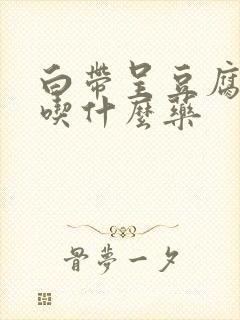 白帶呈豆腐
喫什麼藥
骨夢一夕